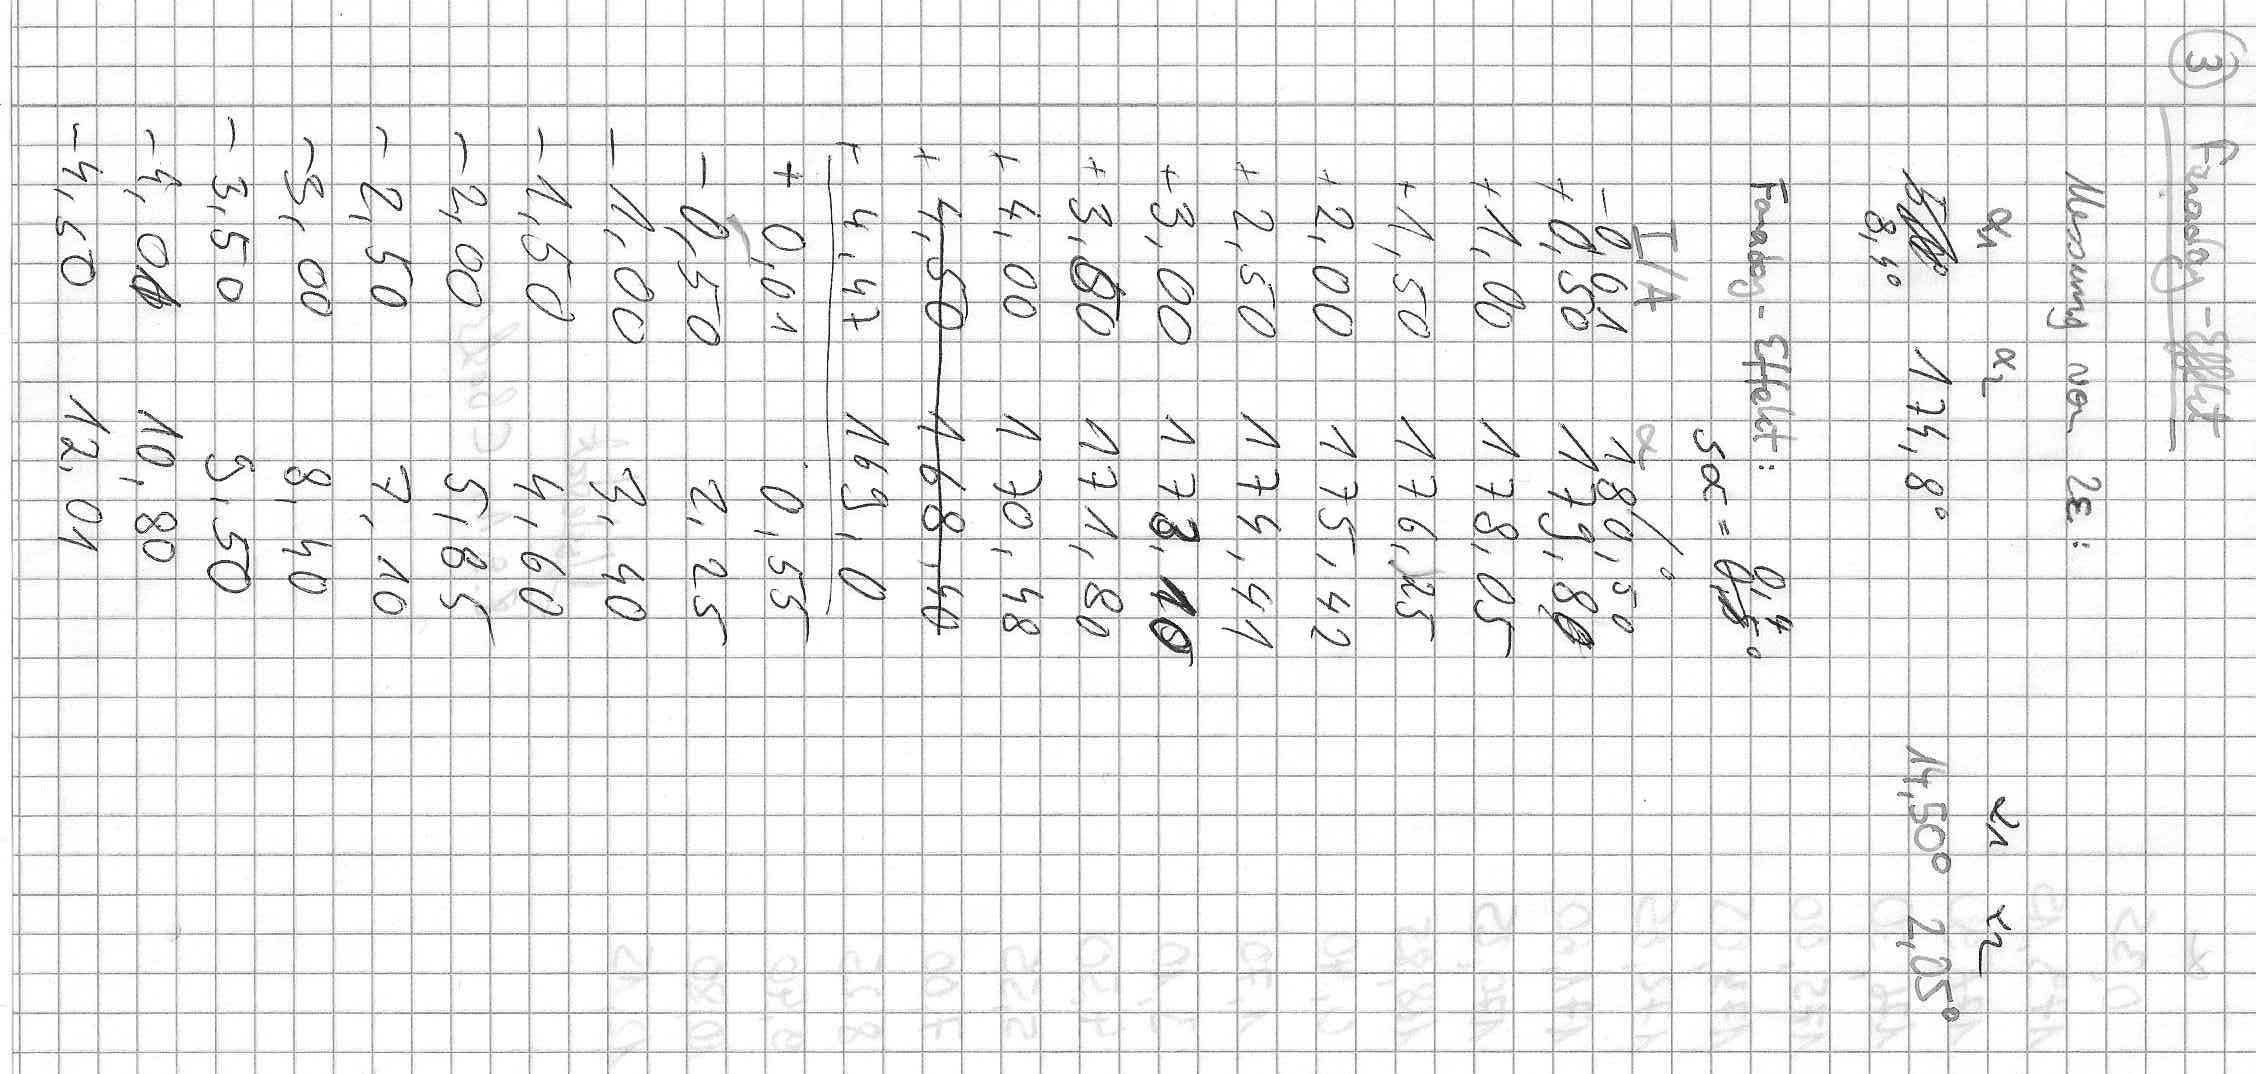 ③ Faraday-Effekt
Messung von 2ε:
α1 α2 α1 α2
8,4° 174,8° 14,50° 2,05°
Faraday-Effekt:
0,4
sα =
I/A α/°
-0,01 180,50
+0,50 179,8
+1,00 178,05
+1,50 176,25
+2,00 175,42
+2,50 174,41
+3,00 173,10
+3,60 171,80
+4,00 170,48
+4,50 168,40
+4,47 169,0
+0,01 0,55
-0,50 2,25
-1,00 3,40
-1,50 4,60
-2,00 5,85
-2,50 7,10
-3,00 8,40
-3,50 9,50
-4,01 10,80
-4,50 12,01